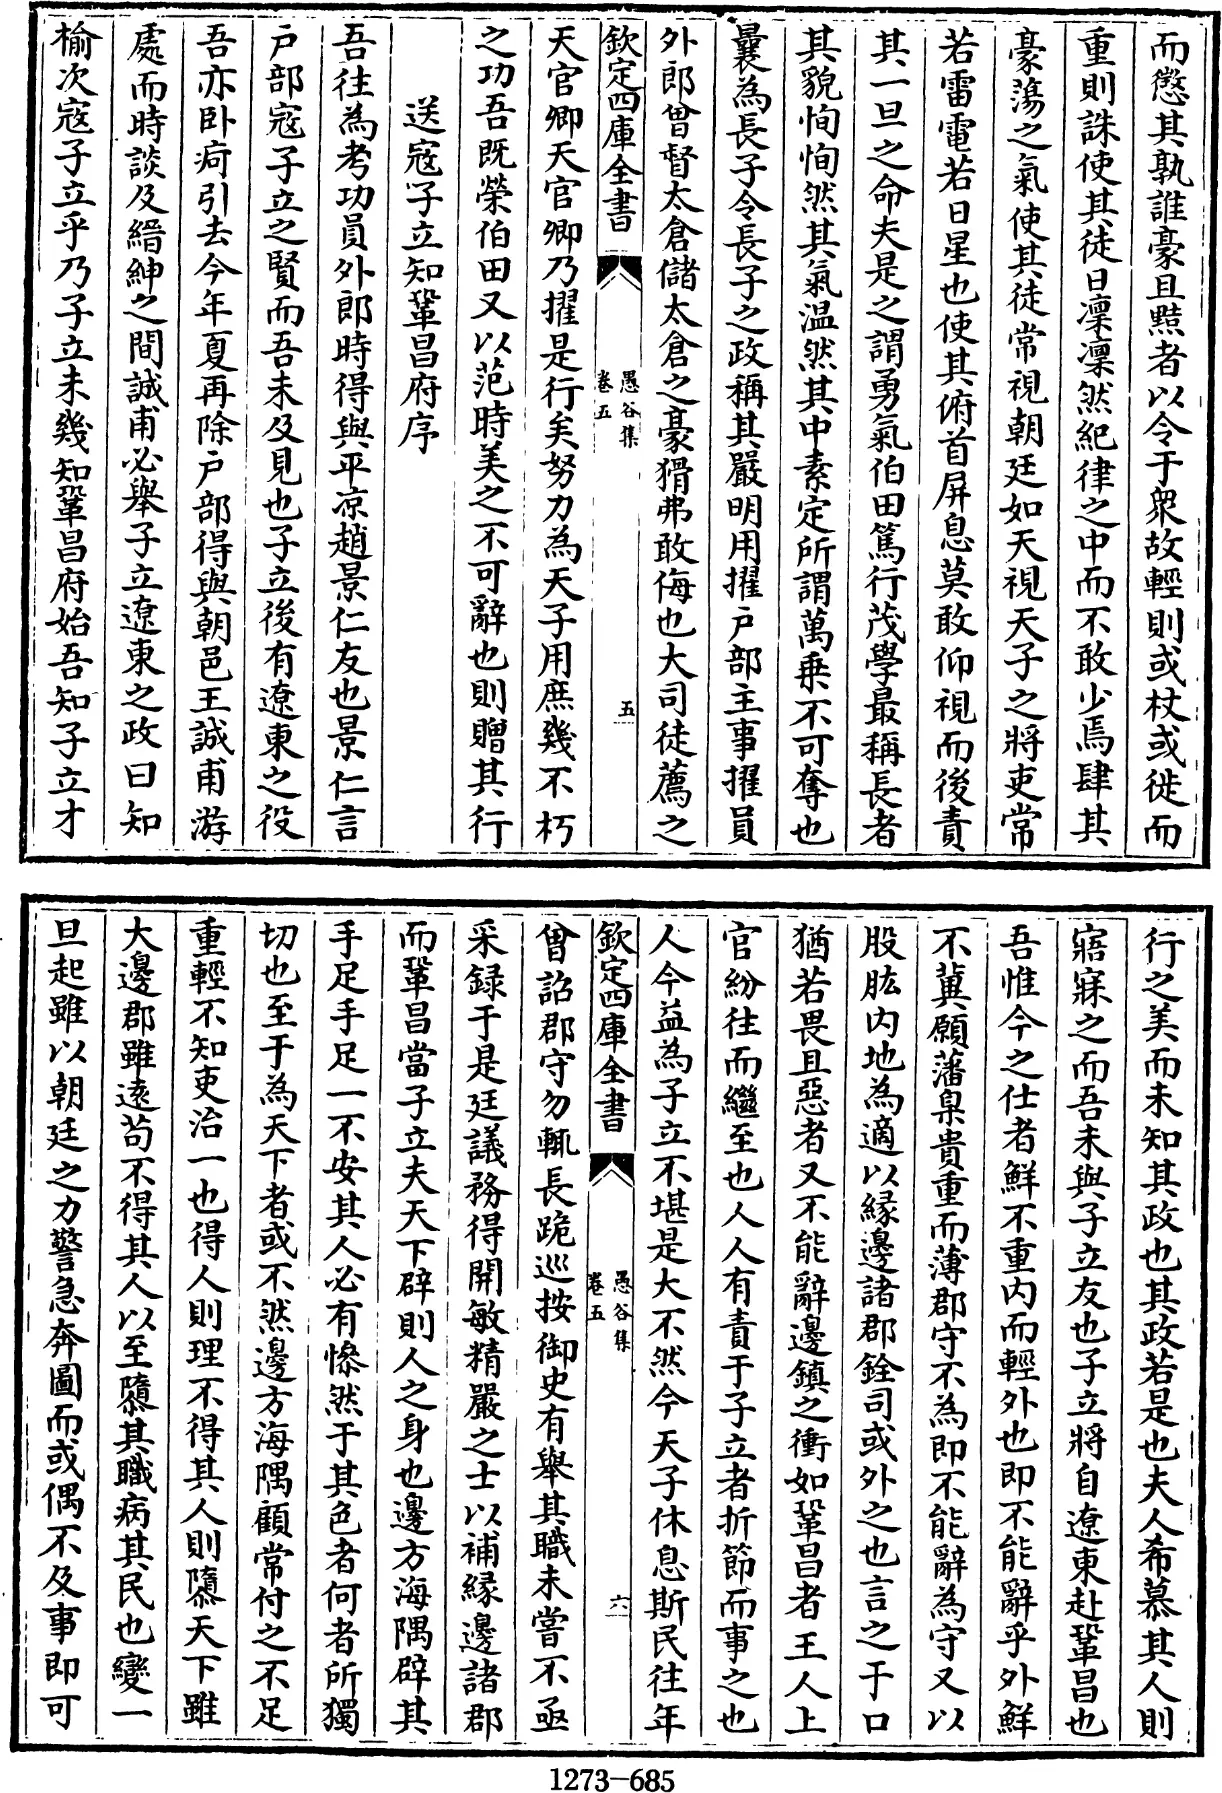 而懲其孰誰豪且黠者以令于衆故輕則或杖或徙而
重則誅使其徒日凜凜然紀律之中而不敢少焉肆其
豪蕩之氣使其徒常視朝廷如天視天子之將吏常
若雷電若日星也使其俯首屏息莫敢仰視而後責
其一旦之命夫是之謂勇氣伯田篤行茂學最稱長者
其貌恂恂然其氣温然其中素定所謂萬乗不可奪也
曩為長子令長子之政稱其嚴明用擢户部主事擢員
外郎曾督太倉儲太倉之豪猾弗敢侮也大司徒薦之
欽定四庫全書
愚谷集
卷五
五
天官卿天官卿乃擢是行矣努力為天子用庶幾不朽
之功吾既榮伯田又以范時美之不可辭也則贈其行
送寇子立知鞏昌府序
吾往為考功員外郎時得與平凉趙景仁友也景仁言
户部寇子立之賢而吾未及見也子立後有遼東之役
吾亦卧疴引去今年夏再除户部得與朝邑王誠甫游
處而時談及縉紳之間誠甫必舉子立遼東之政曰知
榆次寇子立乎乃子立未幾知鞏昌府始吾知子立才
行之美而未知其政也其政若是也夫人希慕其人則
寤寐之而吾未與子立友也子立將自遼東赴鞏昌也
吾惟今之仕者鮮不重内而輕外也即不能辭乎外鮮
不冀願藩臬貴重而薄郡守不為即不能辭為守又以
股肱内地為適以縁邊諸郡銓司或外之也言之于口
猶若畏且惡者又不能辭邊鎮之衝如鞏昌者王人上
官紛往而繼至也人人有責于子立者折節而事之也
人今益為子立不堪是大不然今天子休息斯民往年
欽定四庫全書
愚谷集
卷五
六
曾詔郡守勿輒長跪巡按御史有舉其職未嘗不亟
采録于是廷議務得開敏精嚴之士以補縁邊諸郡
而鞏昌當子立夫天下辟則人之身也邊方海隅辟其
手足手足一不安其人必有慘然于其色者何者所獨
切也至于為天下者或不然邊方海隅顧常付之不足
重輕不知吏治一也得人則理不得其人則隳天下雖
大邊郡雖遠茍不得其人以至隳其職病其民也變一
旦起雖以朝廷之力警急奔圖而或偶不及事即可
1273-685